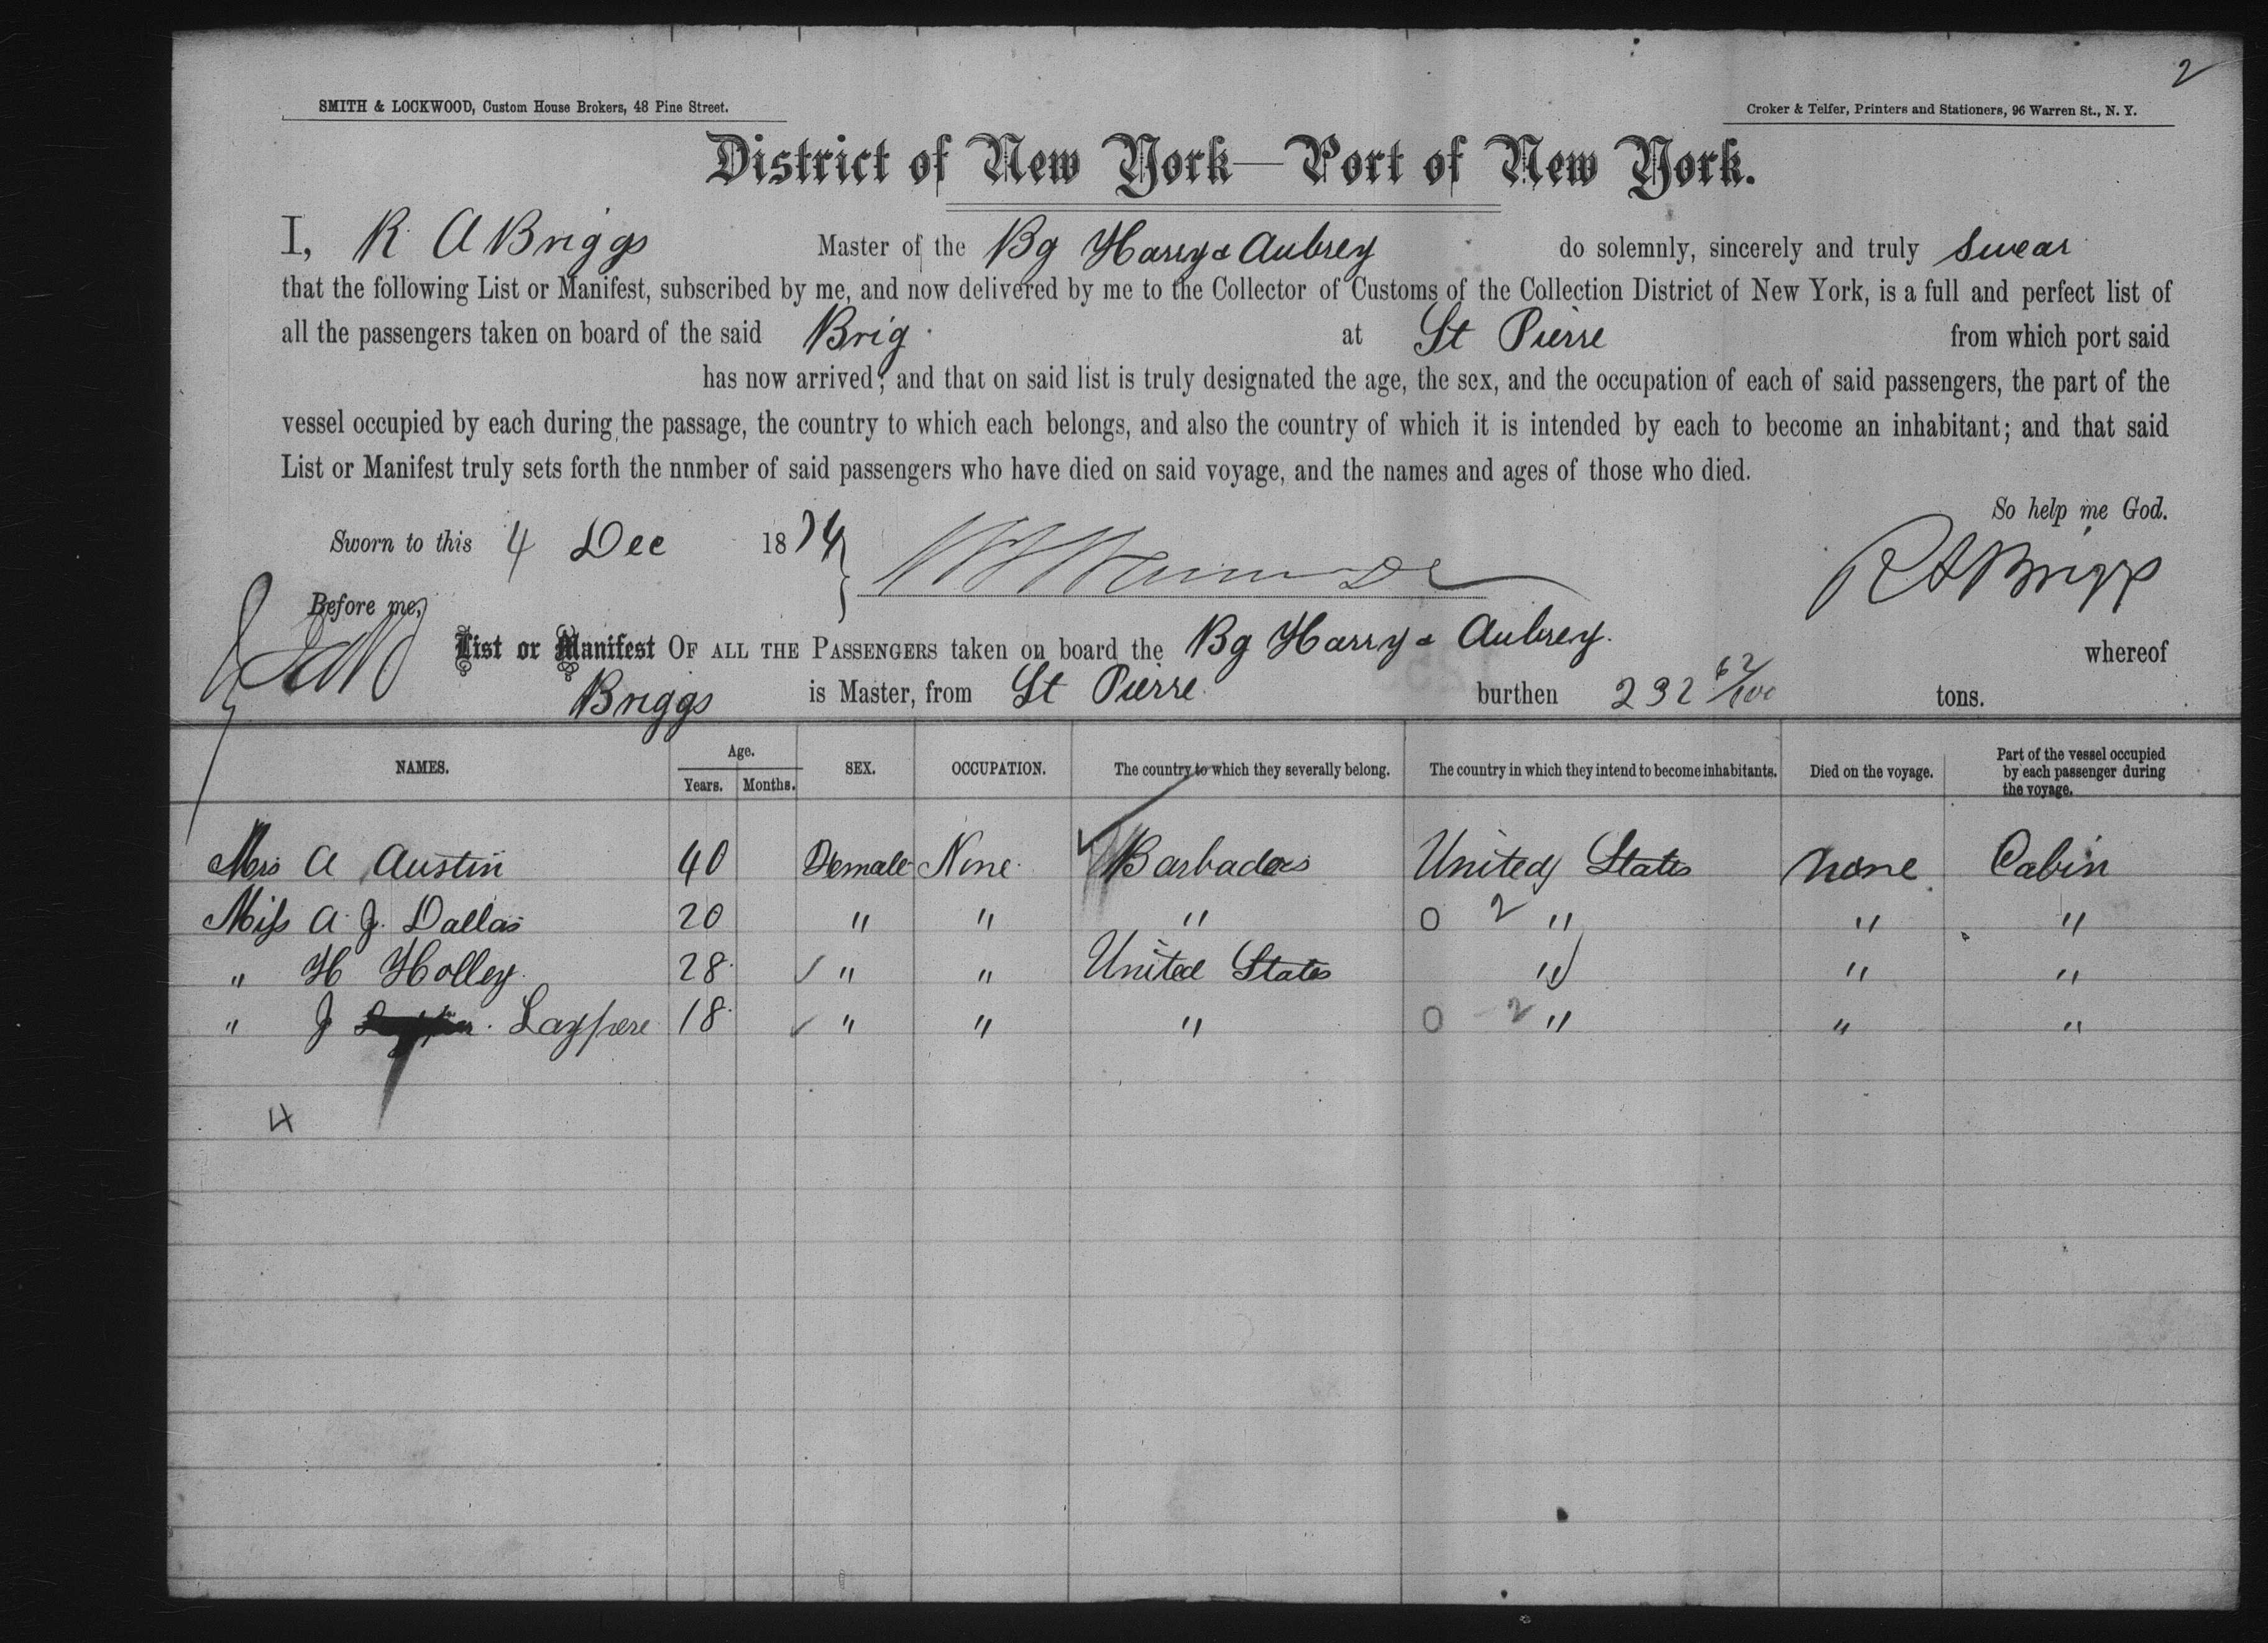 2
SMITH & LOCKWOOD, Custom House Brokers, 48 Pine Street.
Croker & Telfer, Printers and Stationers, 96 Warren St., N. Y.
District of New York—Port of New York.
I, R A Briggs Master of the Bg Harry & Aubrey do solemnly, sincerely and truly swear
that the following List or Manifest, subscribed by me, and now delivered by me to the Collector of Customs of the Collection District of New York, is a full and perfect list of
all the passengers taken on board of the said Brig at St Pierre from which port said
has now arrived; and that on said list is truly designated the age, the sex, and the occupation of each of said passengers, the part of the
vessel occupied by each during the passage, the country to which each belongs, and also the country of which it is intended by each to become an inhabitant; and that said
List or Manifest truly sets forth the nnmber of said passengers who have died on said voyage, and the names and ages of those who died.
So help me God.
Sworn to this 4 Dec 1874
R A Briggs
Before me,
List or Manifest OF ALL THE PASSENGERS taken on board the Bg Harry & Aubrey. whereof
Briggs is Master, from St Pierre burthen 232 62/100 tons.
NAMES. Age. Years. Months. SEX. OCCUPATION. The country to which they severally belong. The country in which they intend to become inhabitants. Died on the voyage. Part of the vessel occupied by each passenger during the voyage.
Mrs A Austin 40 Female None Barbados United States none Cabin
Miss A. J. Dallas 20 " " " 0 2 " " "
" H Holley 28 " " United States " " "
" J Laypere 18 " " " 0 2 " " "
4